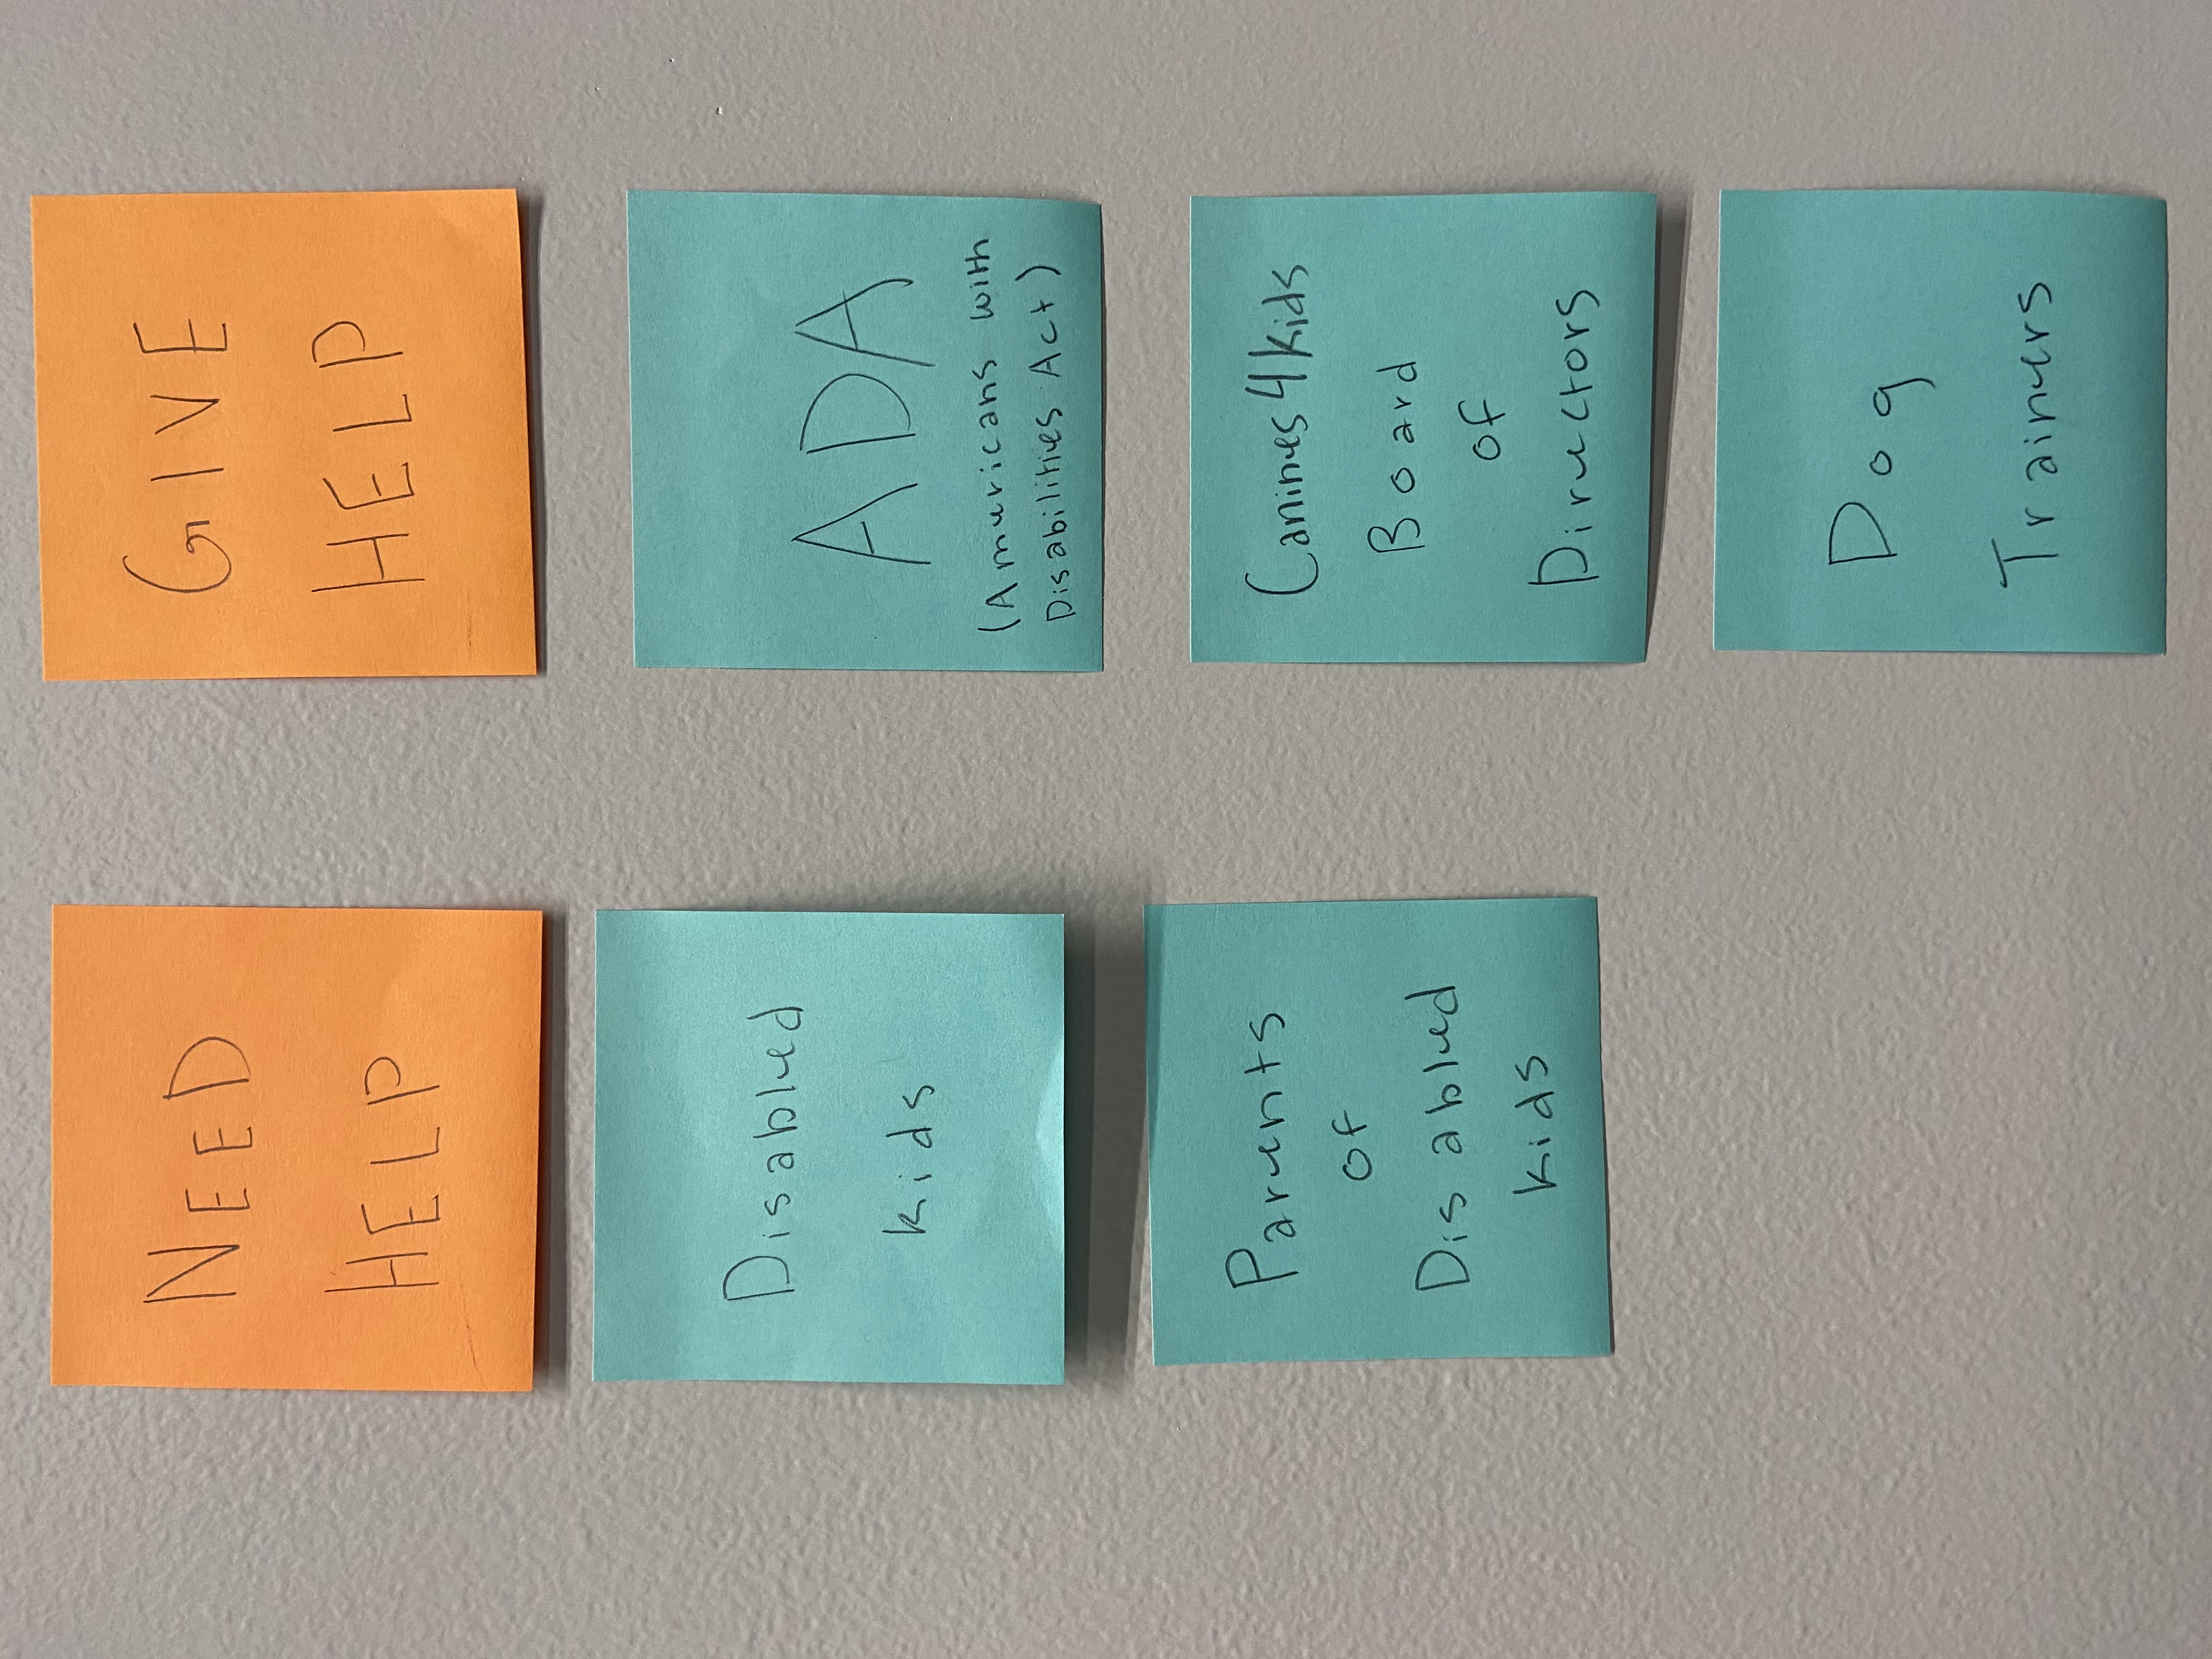 NEED
HELP
Disabled
kids
Parents
of
Disabled
kids
GIVE
HELP
ADA
(Americans with
Disabilities Act)
Canines4Kids
Board
of
Directors
Dog
Trainers